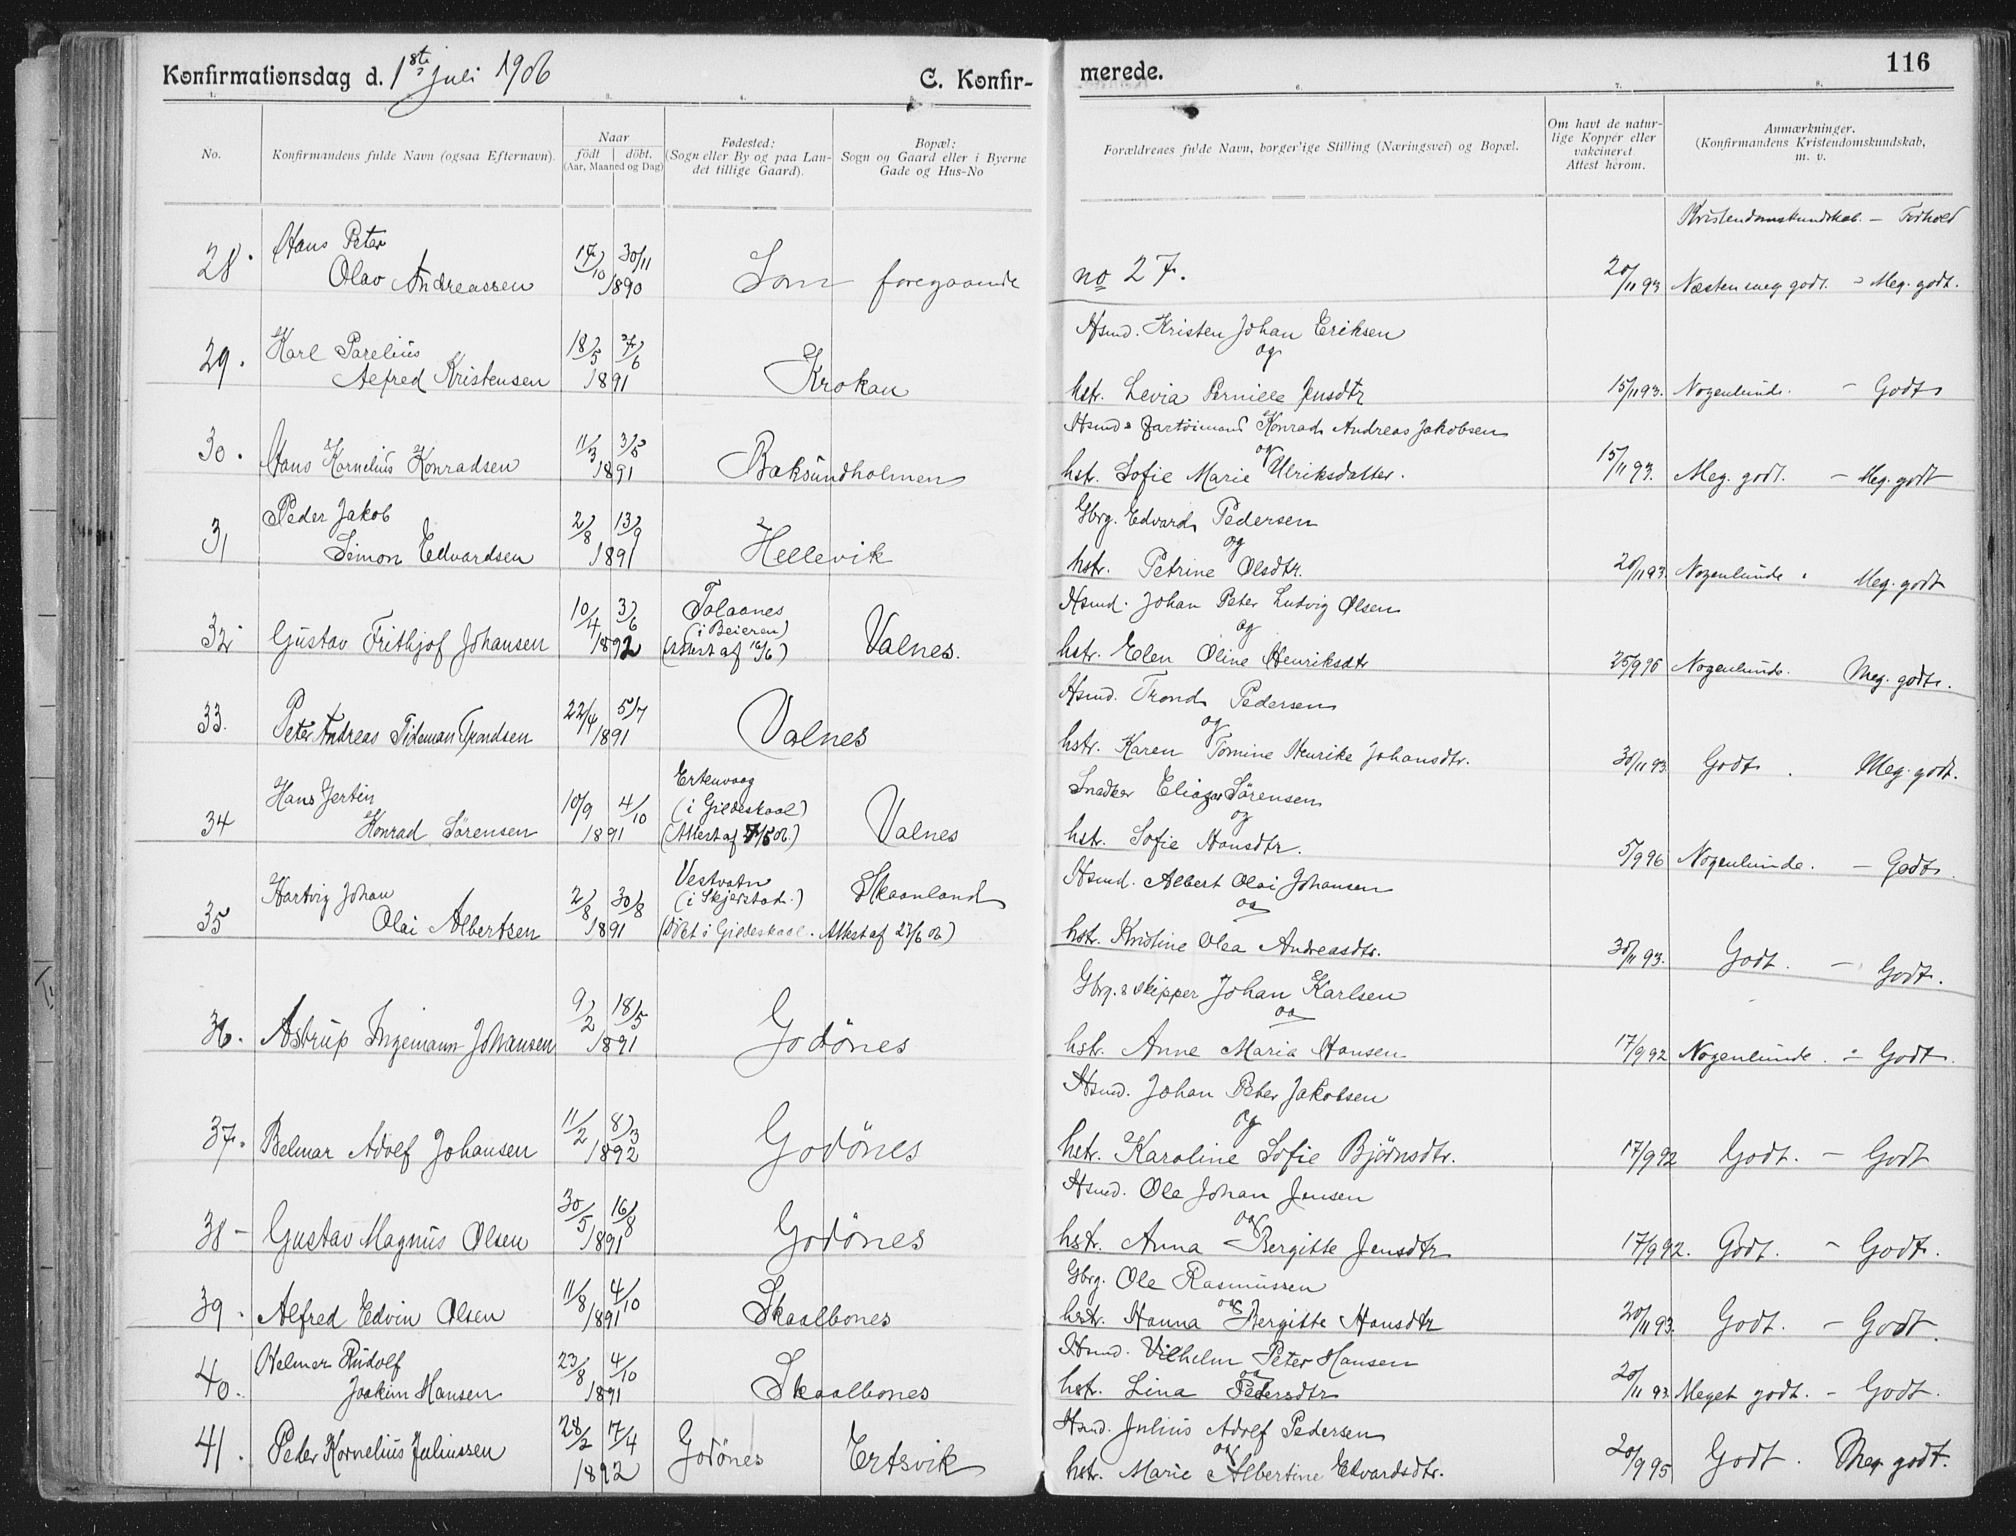 Konfirmationsdag d. 1ste juli 1906
C. Konfir-
merede.
116
No.
Konfirmandens fulde Navn (ogsaa Efternavn).
Naar
født
döbt.
(Aar, Maaned og Dag)
Fødested:
(Sogn eller By og paa Lan-
det tillige Gaard).
Bopæl:
Sogn og Gaard eller i Byerne
Gade og Hus-No
Forældrenes fulde Navn, borgerlige Stilling (Næringsvei) og Bopæl.
Om havt de natur-
lige Kopper eller
vakcineret
Attest herom.
Anmærkninger.
(Konfirmandens Kristendomskundskab,
m. v.
Kristendomskundskab. — Forhold
28. Hans Peter
Olav Andreassen
17/10 30/11
1890
Som foregaaende
no 27.
20/11 93
Næsten meg. godt. - Meg. godt.
29. Karl Parelius
Alfred Kristensen
18/5 7/6
1891
Krokan
Hsmd. Kristen Johan Eriksen
og
hstr. Levia Pernille Jensdtr
15/11 93.
Nogenlunde. — Godt
30. Hans Kornelius Konradsen
11/3 3/5
1891
Baksundholmen
Hsmd & Konrad Andreas Jakobsen
og
hst. Sofie Marie Ulriksdatter.
15/11 93.
Meg. godt. — Meg. godt
31 Peder Jakob
Simon Edvardsen
2/8 13/9
1891
Hellevik
Gbrg. Edvard Pedersen
og
hstr. Petrine Olsdtr.
20/11 93.
Nogenlunde. Meg. godt
32 Gustav Frithjof Johansen
10/4 3/6
1892
Tolaanes
(i Beieren)
(Attest af 16/6)
Valnes.
Hsmd. Johan Peter Ludvig Olsen
og
hstr. Elen Oline Henriksdtr
25/9 96
Nogenlunde. Meg. godt.
33. Peter Andreas Tideman Trondsen
22/4 5/7
1891
Valnes
Hsmd. Trond Pedersen
og
hstr. Karen Tomine Henrike Johansdtr.
30/11 93
Godt. Meg. godt.
34 Hans Jertin
Konrad Sørensen
10/9 4/10
1891
Ertenvaag
(i Gildeskaal)
(Attest af 7/5 06.)
Valnes
Snedker Eliazar Sørensen
og
hstr. Sofie Hansdtr.
5/9 96
Nogenlunde. — Godt.
35 Hartvig Johan
Olai Albertsen
2/8 30/8
1891
Vestvatn
(i Skjerstad.)
(Döbt i Gildeskaal. Attest af 23/6 06)
Skaanland
Hsmd. Albert Olai Johansen
og
hstr. Kristine Olea Andreasdtr.
30/11 93.
Godt. — Godt.
36. Astrup Ingemann Johansen
9/2 18/5
1891
Godönes
Gbrg. & skipper Johan Karlsen
og
hstr. Anne Maria Hansen
17/9 92
Nogenlunde. - Godt.
37. Belmar Adolf Johansen
11/2 8/3
1892
Godönes
Hsmd. Johan Peter Jakobsen
og
hstr. Karoline Sofie Bjørnsdtr.
17/9 92
Godt. — Godt
38 — Gustav Magnus Olsen
30/5 16/8
1891
Godönes
Hsmd. Ole Johan Jensen
og
hstr. Anna Bergitte Jensdtr
17/9 92.
Godt. — Godt.
39. Alfred Edvin Olsen
11/8 4/10
1891
Skaalbones
Gbrg. Ole Rasmussen
og
hstr. Hanna Bergitte Hansdtr
20/11 93.
Godt. — Godt.
40. Helmer Rudolf
Joakim Hansen
23/8 4/10
1891
Skaalbones
Hsmd. Vilhelm Peter Hansen
og
hst. Lina Pedersdtr
20/11 93.
Meget godt. — Godt.
41. Peter Kornelius Juliussen
28/2 17/4
1892
Godönes
Ertsvik
Hsmd. Julius Adolf Pedersen
og
hstr. Marie Albertine Edvardsdtr.
20/9 95
Godt. Meg. godt.